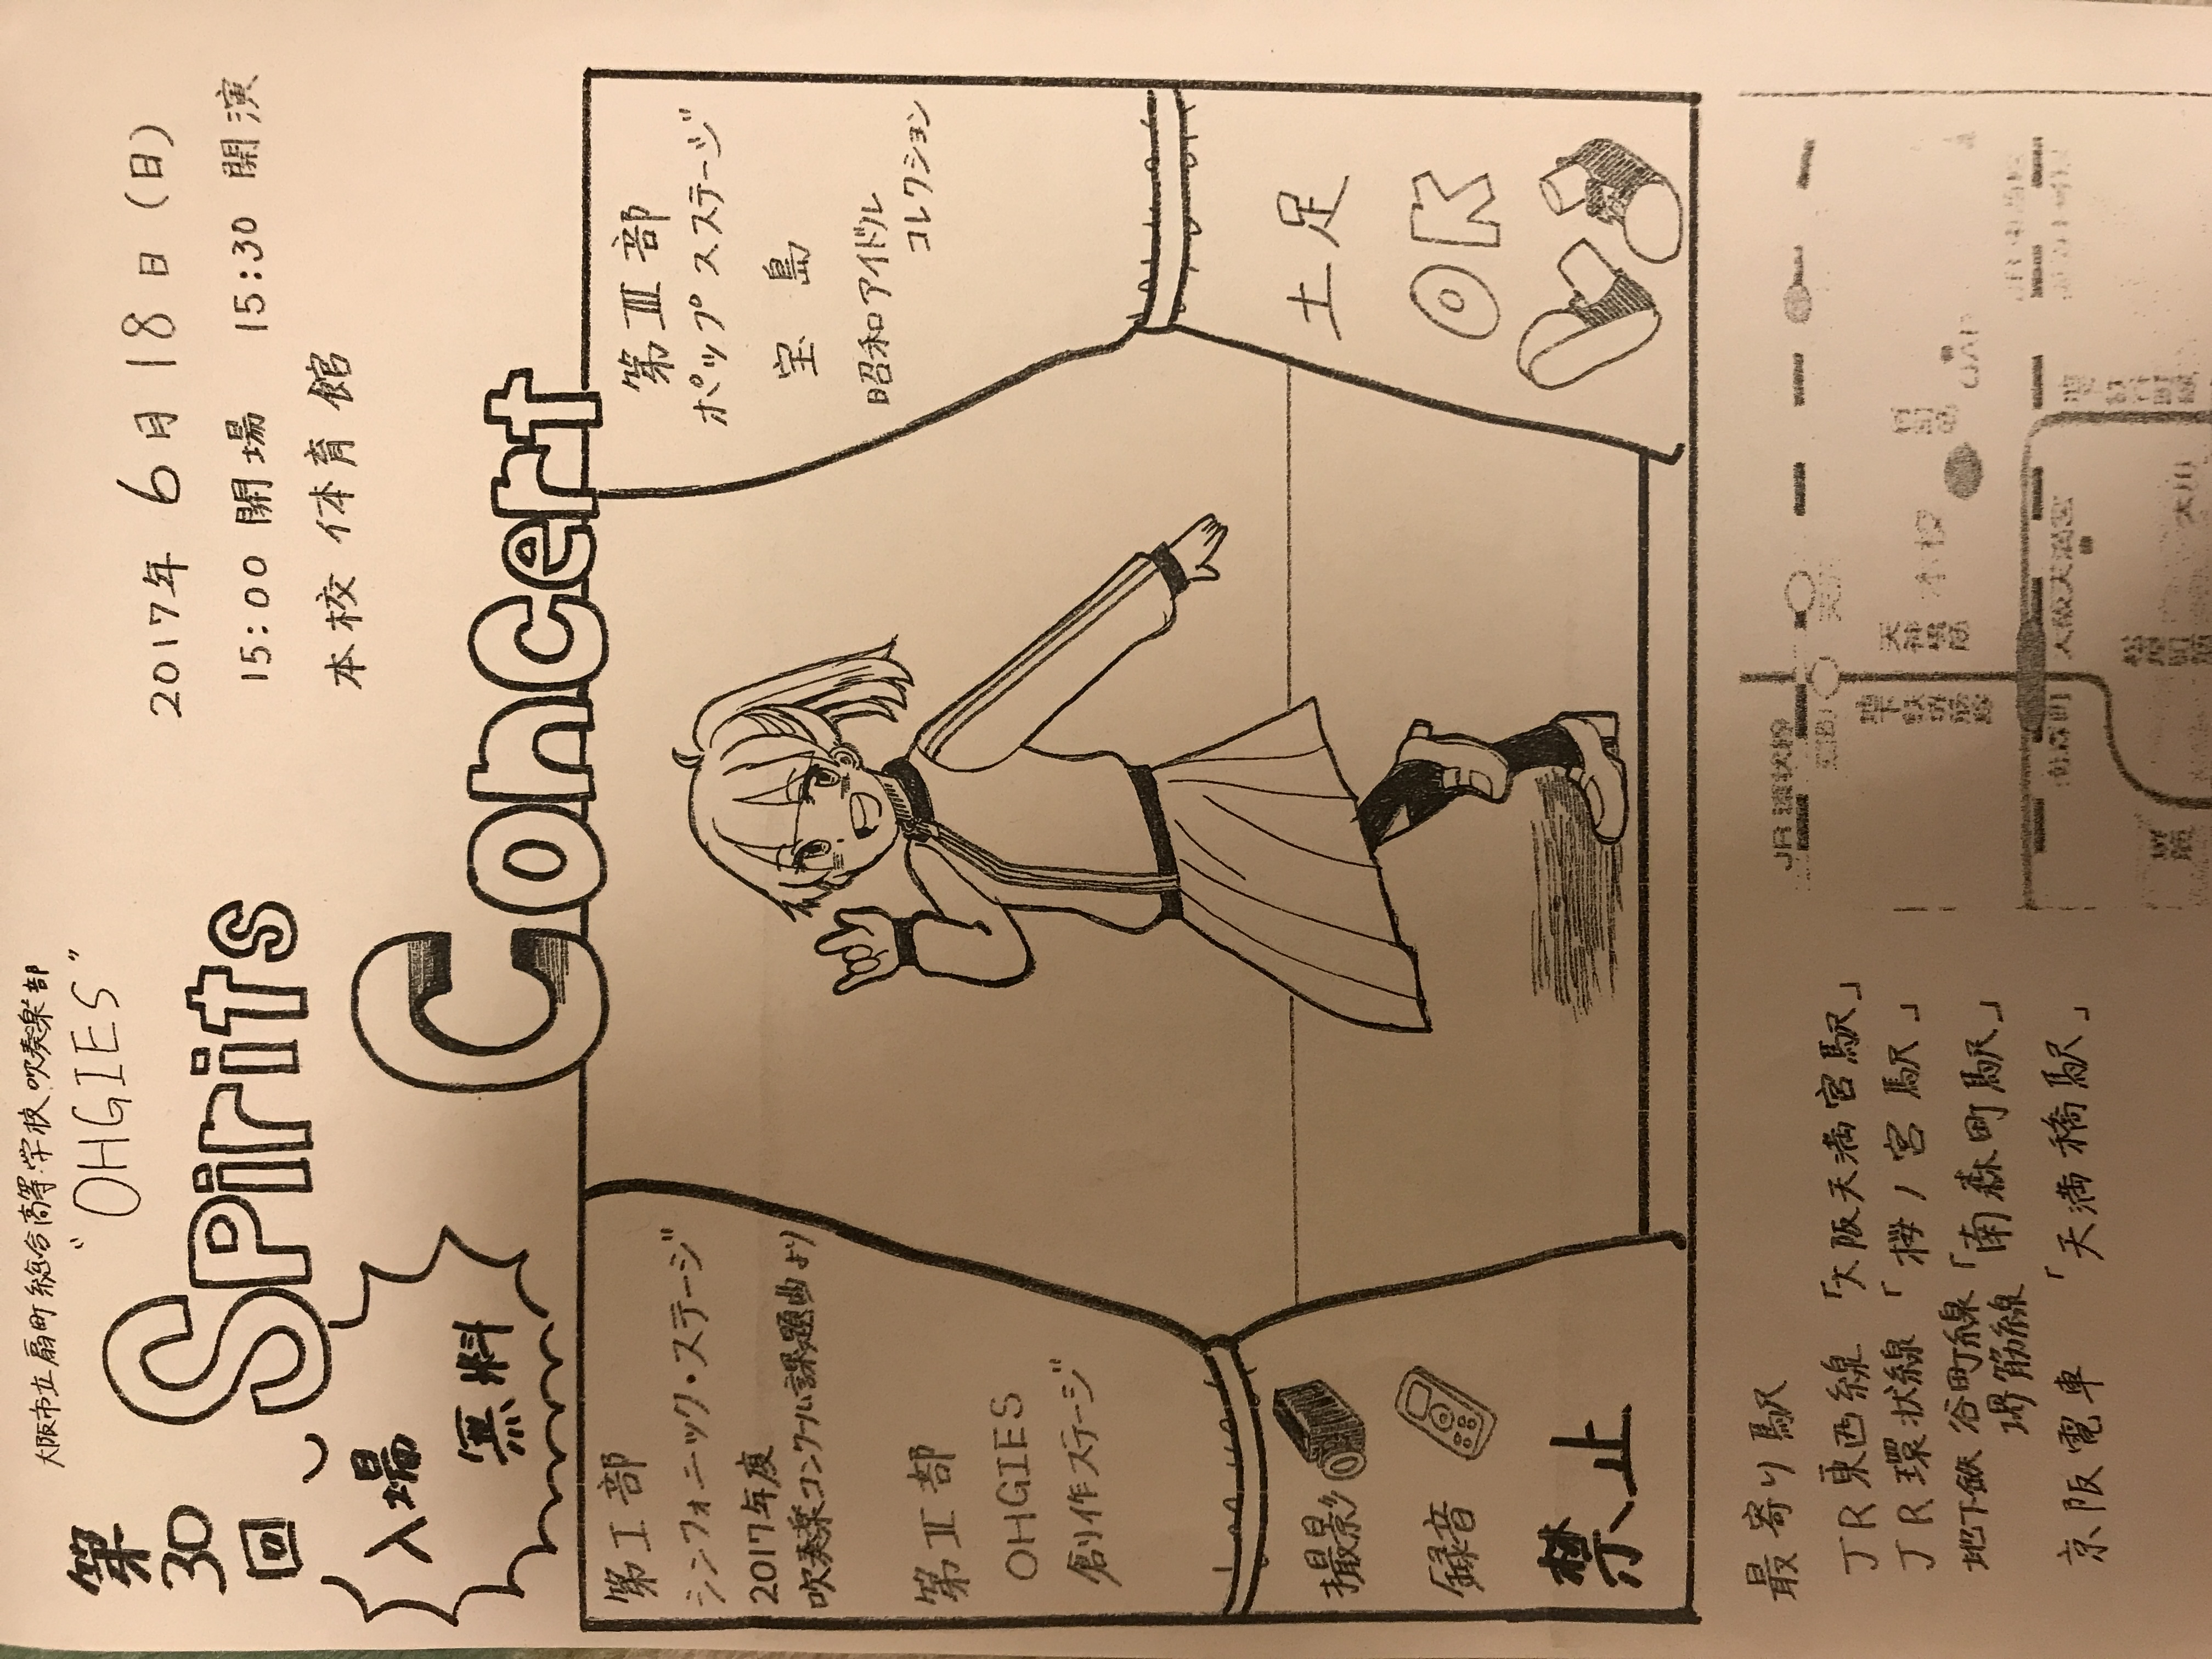 大阪市立扇町総合高等学校吹奏楽部
"OHGIES"
第30回
Spirits
Concert
2017年 6月18日(日)
15:00 開場 15:30 開演
本校 体育館
入場
無料
第Ⅰ部
シンフォニック・ステージ
2017年度
吹奏楽コンクール課題曲より
第Ⅱ部
OHGIES
創作ステージ
撮影
録音
禁止
第Ⅲ部
ポップスステージ
宝島
昭和アイドル
コレクション
土足
OK
最寄り駅
JR東西線 「大阪天満宮駅」
JR環状線 「桜ノ宮駅」
地下鉄 谷町線 「南森町駅」
堺筋線
京阪電車 「天満橋駅」
本校
大阪天満宮
南森町
大川